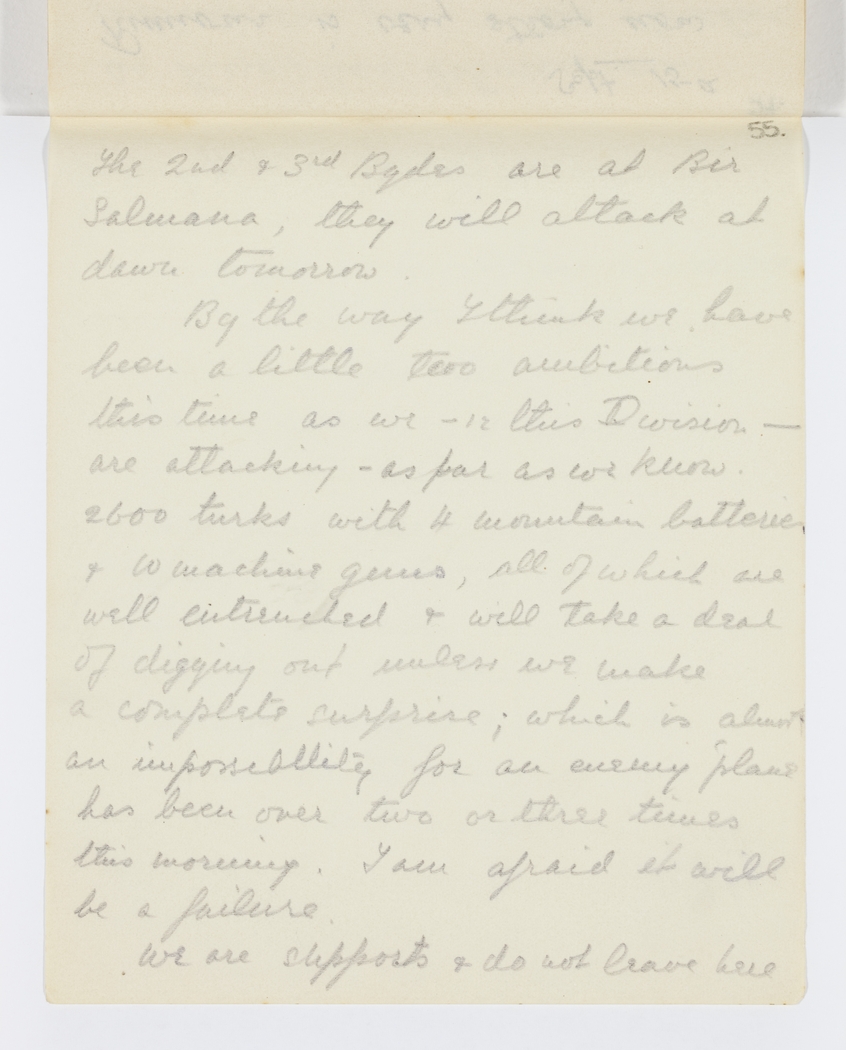 55.
The 2nd & 3rd Bgdes are at Bir
Salmana, they will attack at
dawn tomorrow.
By the way I think we have
been a little too ambitions
this time as we - in this Division -
are attacking - as far as we know.
2600 turks with 4 mountain batteries
& 10 machine guns, all of which are
well entrenched & will take a deal
of digging out unless we make
a complete surprise; which is almost
an impossibllity for an enemy 'plane
has been over two or three times
this morning. I am afraid it will
be a failure.
We are supports & do not leave here